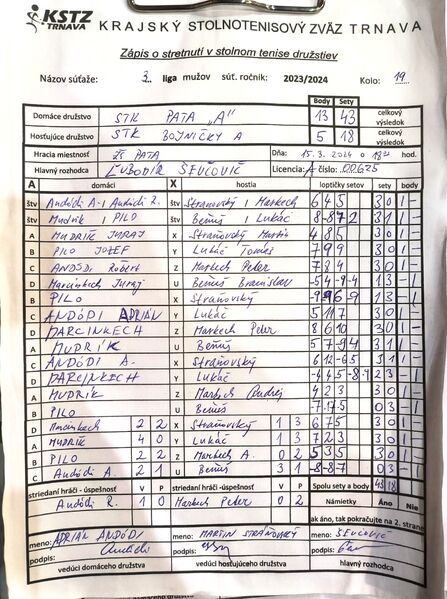 KSTZ TRNAVA KRAJSKÝ STOLNOTENISOVÝ ZVÄZ TRNAVA
Zápis o stretnutí v stolnom tenise družstiev
Názov súťaže: 3. liga mužov súť. ročník: 2023/2024 Kolo: 19
Body Sety
Domáce družstvo STK PATA "A" 13 43 celkový výsledok
Hosťujúce družstvo STK BOJNIČKY A 5 18 celkový výsledok
Hracia miestnosť ZŠ PATA Dňa: 15.3.2024 o 18 hod.
Hlavný rozhodca ĽUBOMÍR ŠEVČOVIČ Licencia: A číslo: 00625
A domáci X hostia loptičky setov sety body
štv Andódi A. Andódi R. štv Straňovský / Markech 6 4 5 3 0 1 -
štv Mudrik / PILO štv Beňuš / Lukáč 8 -8 7 2 3 1 1 -
A MUDRIK JURAJ X Straňovský Martin 4 8 5 3 0 1 -
B PILO JOZEF Y Lukáč Tomáš 7 9 9 3 0 1 -
C ANDÓDI Róbert Z Markech Peter 7 8 4 3 0 1 -
D Marcinkech Juraj U Beňuš Branislav -5 4 -9 -4 1 3 - 1
B PILO X Straňovský -9 9 6 9 1 -
C ANDÓDI ADRIÁN Y Lukáč 5 11 7 3 0 1 -
D MARCINKECH Z Markech Peter 8 6 10 3 0 1 -
A MUDRIK U Beňuš 5 7 9 4 3 1 1 -
C ANDÓDI A. X Straňovský 6 12 -6 5 3 1 1 -
D MARCINKECH Y Lukáč 2 3 - 1
A MUDRIK Z Markech Andrej 4 2 3 3 0 1 -
B PILO U Beňuš 0 3 - 1
D Marcinkech 2 2 X Straňovský 1 3 6 7 5 3 0 1 -
A MUDRIK 4 0 Y Lukáč 1 3 7 2 3 3 0 1 -
B PILO 2 2 Z Markech A. 0 2 5 3 5 3 0 1 -
C Andódi A. 2 1 U Beňuš 3 1 -8 -8 -7 0 3 - 1
striedaní hráči - úspešnosť V P striedaní hráči - úspešnosť V P Spolu sety a body 43 18
Andódi R. 1 0 Markech Peter 0 2 Námietky Áno Nie
ak áno, tak pokračujte na 2. strane
meno: ADRIÁN ANDÓDI meno: MARTIN STRAŇOVSKÝ meno: ŠEVČOVIČ
podpis: Andódi podpis: podpis:
vedúci domáceho družstva vedúci hosťujúceho družstva hlavný rozhodca